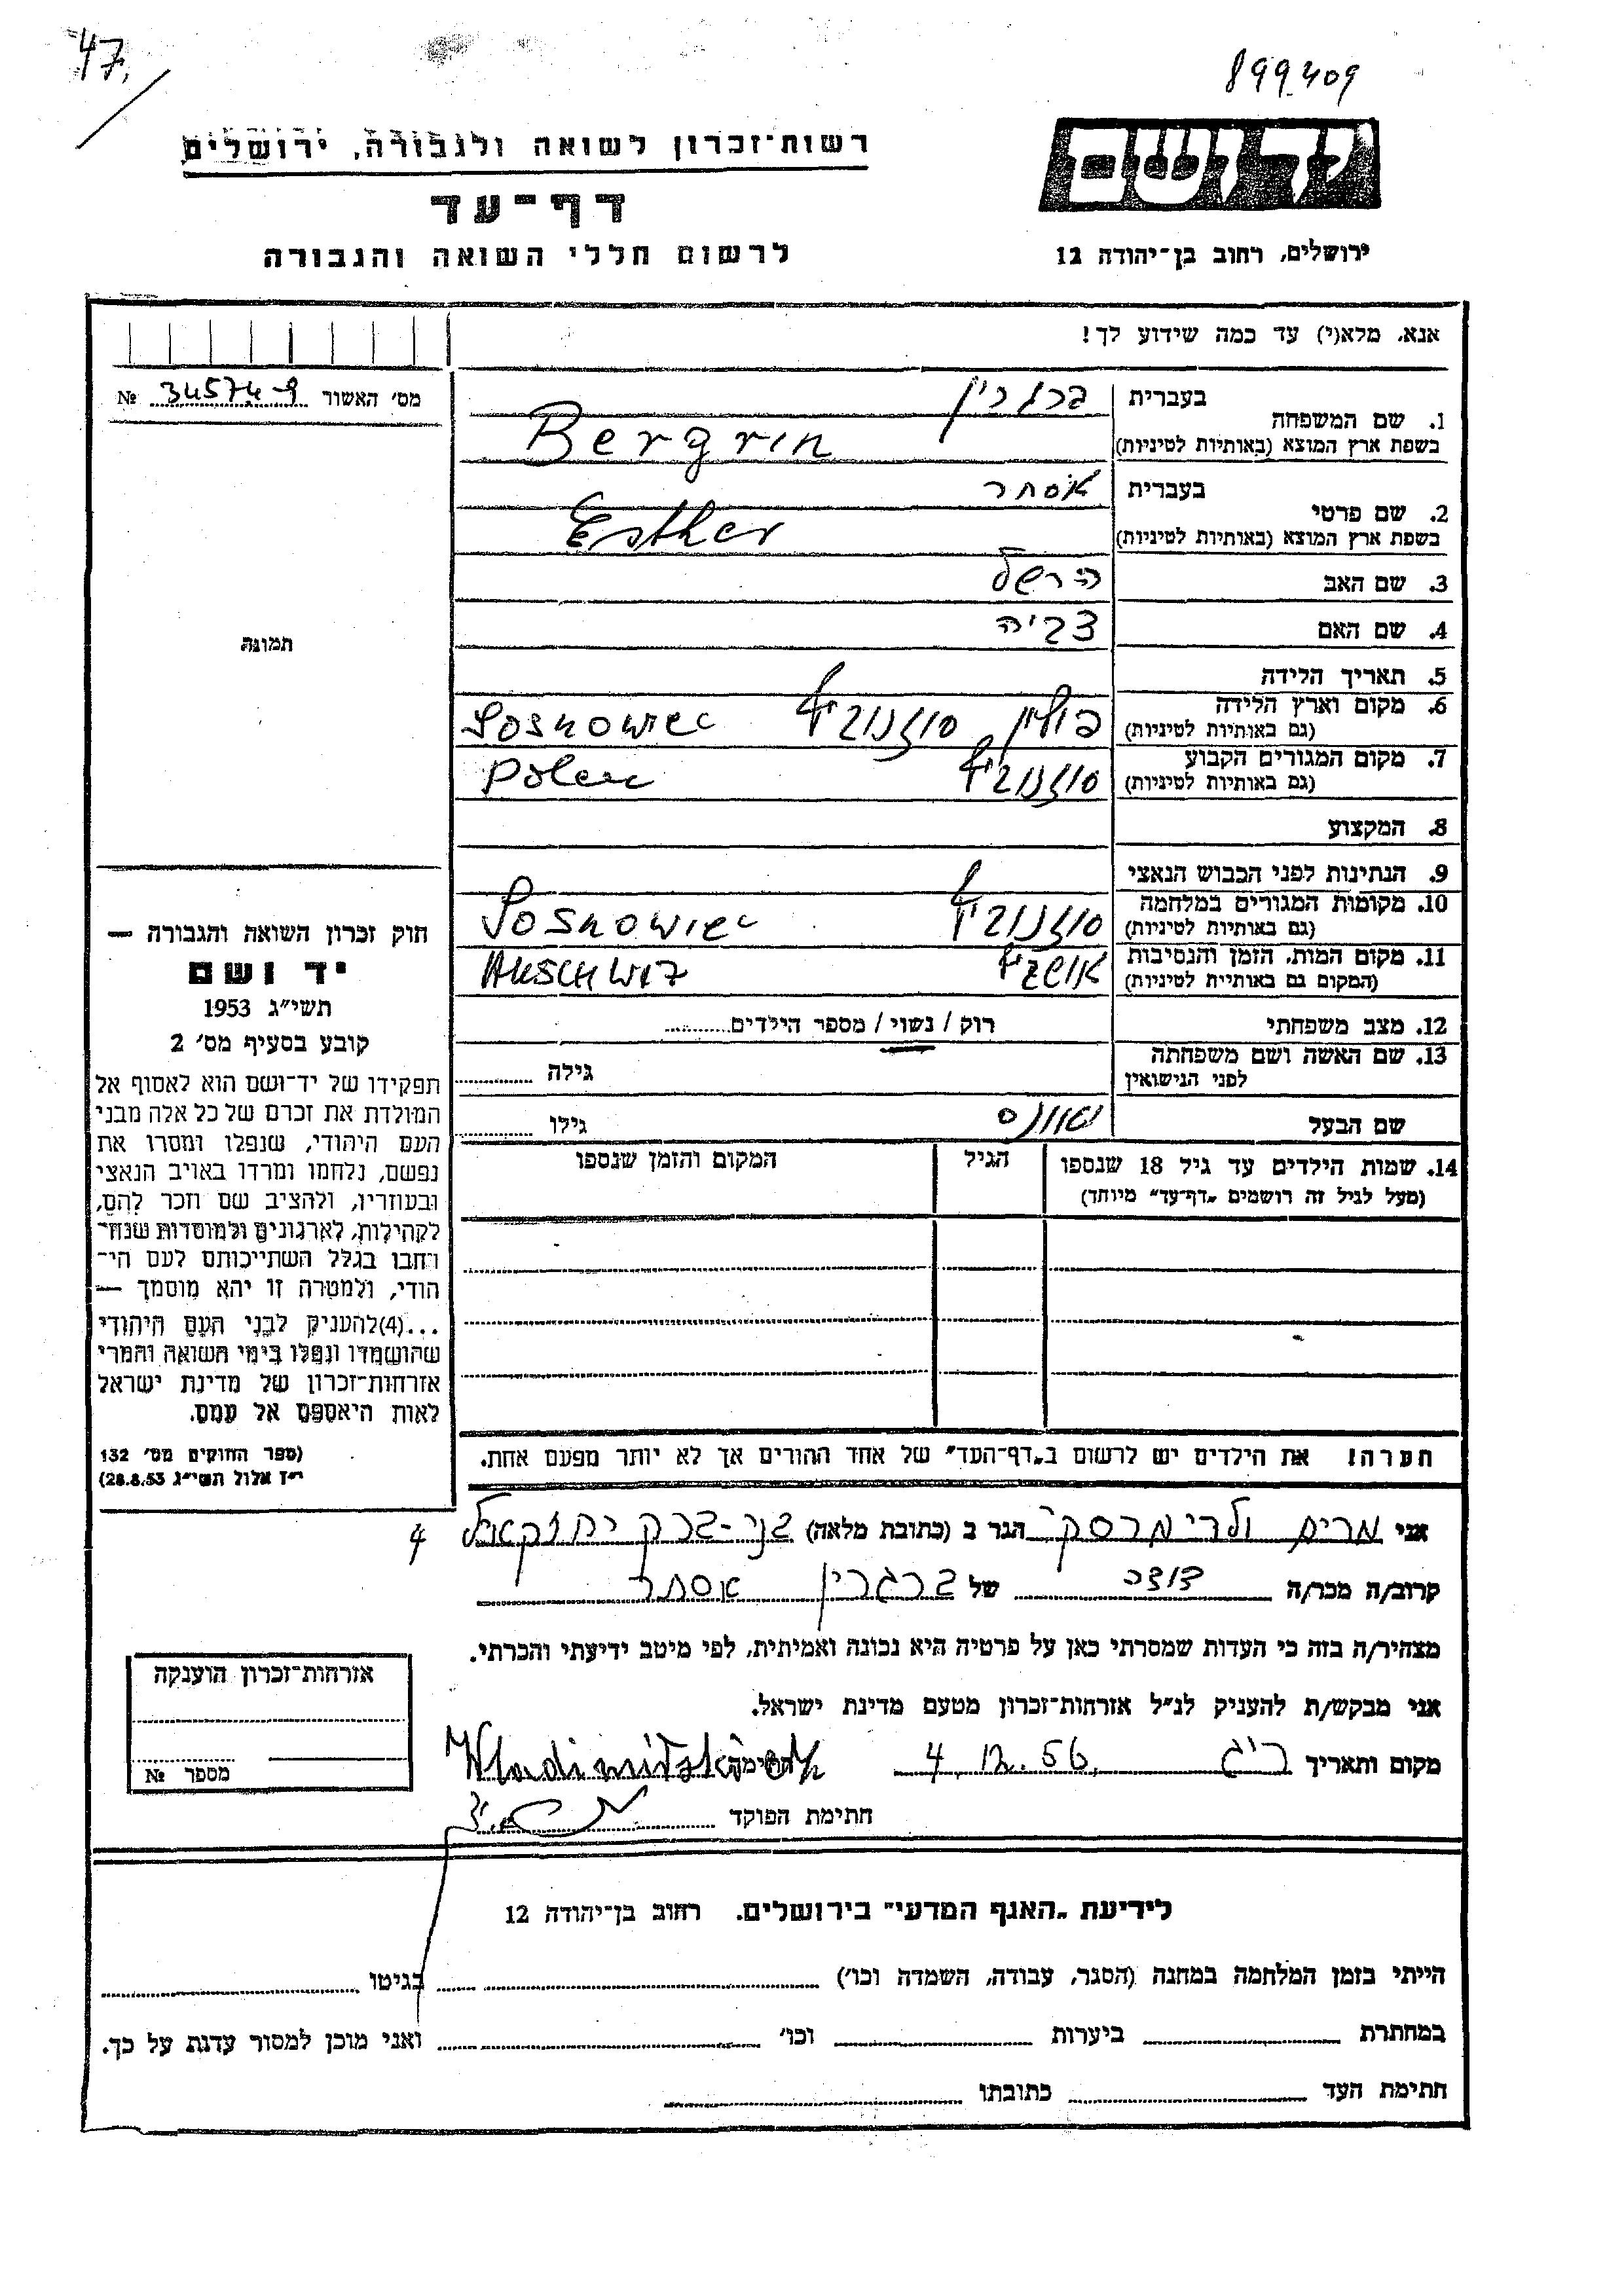 47.
899409
רשות־זכרון לשואה ולגבורה, ירושלים
דף־עד
לרשום חללי השואה והגבורה
יד ושם
ירושלים, רחוב בן־יהודה 12
אנא, מלא(י) עד כמה שידוע לך!
מס׳ האשור 34574-9 №
1. שם המשפחה
בעברית ברגרין
בשפת ארץ המוצא (באותיות לטיניות) Bergrin
2. שם פרטי
בעברית אסתר
בשפת ארץ המוצא (באותיות לטיניות) Esther
3. שם האב הרשל
4. שם האם צביה
5. תאריך הלידה
6. מקום וארץ הלידה
(גם באותיות לטיניות) פולין סוזנוביץ Sosnowiec
7. מקום המגורים הקבוע
(גם באותיות לטיניות) סוזנוביץ Polen
8. המקצוע
9. הנתינות לפני הכבוש הנאצי
10. מקומות המגורים במלחמה
(גם באותיות לטיניות) סוזנוביץ Sosnowiec
11. מקום המות, הזמן והנסיבות
(המקום גם באותיית לטיניות) אושביץ AUSCHWIZ
12. מצב משפחתי רוק / נשוי / מספר הילדים
13. שם האשה ושם משפחתה
לפני הנישואין
גילה
שם הבעל
גילו
14. שמות הילדים עד גיל 18 שנספו
(מעל לגיל זה רושמים „דף־עד״ מיוחד)
הגיל
המקום והזמן שנספו
הערה! את הילדים יש לרשום ב„דף־העד״ של אחד ההורים אך לא יותר מפעם אחת.
תמונה
חוק זכרון השואה והגבורה —
יד ושם
תשי״ג 1953
קובע בסעיף מס׳ 2
תפקידו של יד־ושם הוא לאסוף אל
המולדת את זכרם של כל אלה מבני
העם היהודי, שנפלו ומסרו את
נפשם, נלחמו ומרדו באויב הנאצי
ובעוזריו, ולהציב שם וזכר להם,
לקהילות, לארגונים ולמוסדות שנח־
רחבו בגלל השתייכותם לעם הי־
הודי, ולמטרה זו יהא מוסמך —
...(4)להעניק לבני העם היהודי
שהושמדו ונפלו בימי השואה והמרי
אזרחות־זכרון של מדינת ישראל
לאות היאספם אל עמם.
(ספר החוקים מס׳ 132
י״ז אלול תשי״ג 28.8.53)
אני מרים ולדימרסקי הגר ב (כתובת מלאה) בני-ברק יחזקאל 4
קרוב/ה מכר/ה דודה של ברגרין אסתר
מצהיר/ה בזה כי העדות שמסרתי כאן על פרטיה היא נכונה ואמיתית, לפי מיטב ידיעתי והכרתי.
אני מבקש/ת להעניק לנ״ל אזרחות־זכרון מטעם מדינת ישראל.
מקום ותאריך ר״ג 4.12.56
חתימת הפוקד
אזרחות־זכרון הוענקה
מספר №
לידיעת „האגף המדעי״ בירושלים. רחוב בן־יהודה 12
הייתי בזמן המלחמה במחנה (הסגר, עבודה, השמדה וכו׳) בגיטו
במחתרת ביערות וכו׳ ואני מוכן למסור עדות על כך.
חתימת העד כתובתו